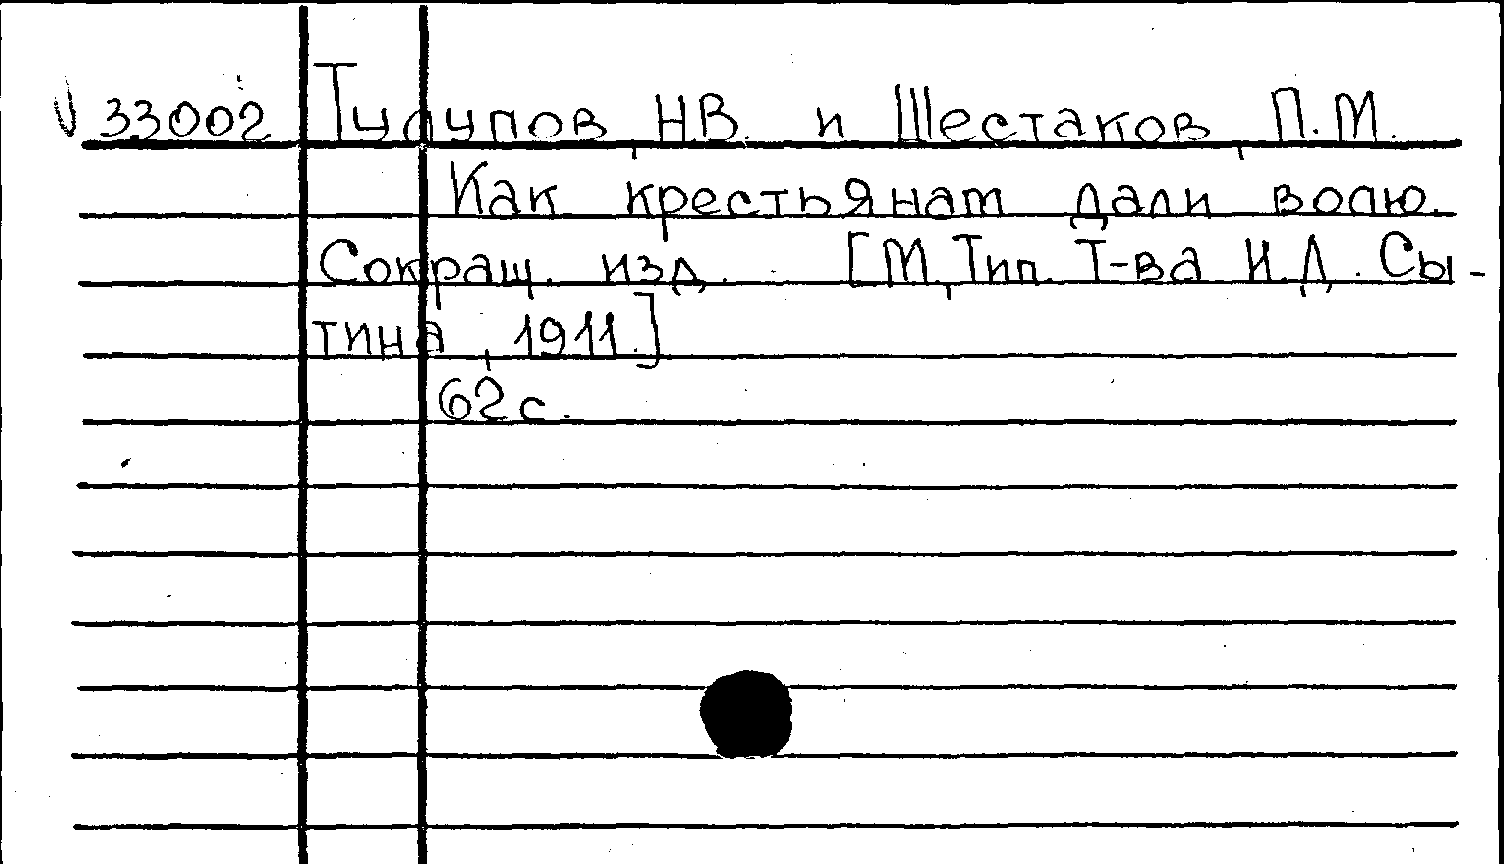 V 33002 Тулупов, Н.В. и Шестаков, П.М.
Как крестьянам дали волю.
Сокращ. изд. [М., Тип. Т-ва И.Д. Сы-
тина, 1911.]
62 с.